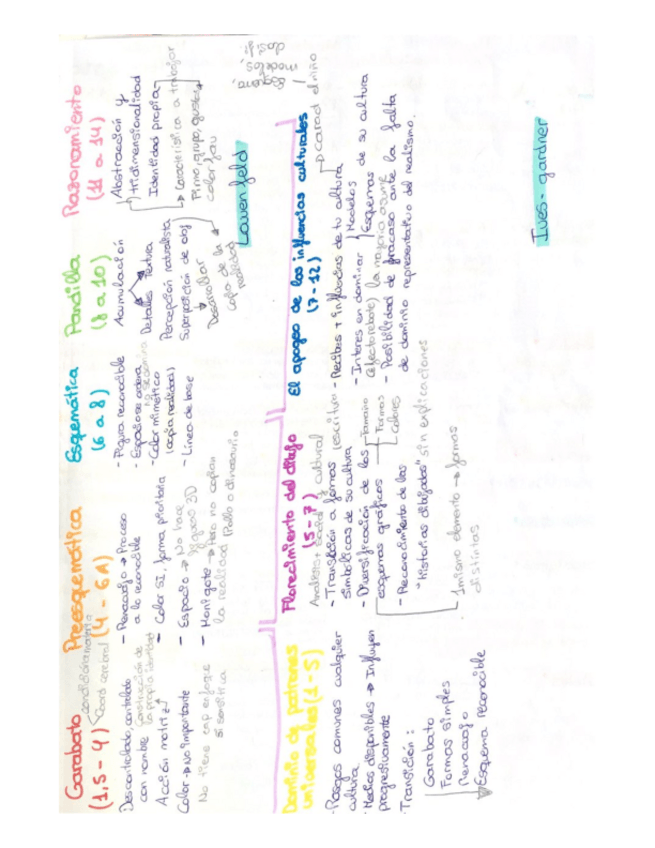 Garabato
(1,5 - 4)
condiciona motriz
coord cerebral
Descontrolado, controlado
con nombre
construcción de
la propia identidad
Acción motriz
Color → No importante
No tiene cap enfoque
si sensitiva
Preesquemática
(4 - 6A)
- Renacuajo → Proceso
a lo reconocible
- Color SI, forma prioritaria
- Espacio → No hace
figuras 3D
- Monigote → Pero no copian
la realidad (Pollo o dinosaurio
Esqemática
(6 a 8)
- Figura reconocible
- Espacio se ordena
- Color mimético
(copia realidad)
- Linea de base
Pandilla
(8 a 10)
Acumulación
Detalles Textura
Percepción naturalista
Superposición de obj
Desarrollar
copia de la
realidad
Razonamiento
(11 a 14)
Abstracción y
tridimensionalidad
Identidad propia
→ Característica a trabajar
Ritmo, grupo, gustos,
color fav
Lowenfeld
Dominio de patrones
universales (1 - 5)
· Rasgos comunes cualquier
cultura
· Medios disponibles → Influyen
progresivamente
· Transición :
Garabato
Formas simples
Renacuajo
Esquema Reconocible
Florecimiento del dibujo
(5 - 7)
Analisis + social y cultural
- Translación a formas (escritura
simbolicas de su cultura
- Diversificación de los
esquemas gráficos
Tamaño
Formas
Colores
- Reconocimiento de las
"Historias dibujadas" sin explicaciones
1 mismo elemento → formas
distintas
El apogeo de las influencias culturales
(7 - 12)
→ caract el niño
modelos,
- Recibes + influencias de tu cultura
- Interes en dominar
Modelos
Esquemas de su cultura
(efecto rebote) la mayoria asume
- Posibilidad de fracaso ante la falta
de dominio representativo del realismo.
Ives - gardner